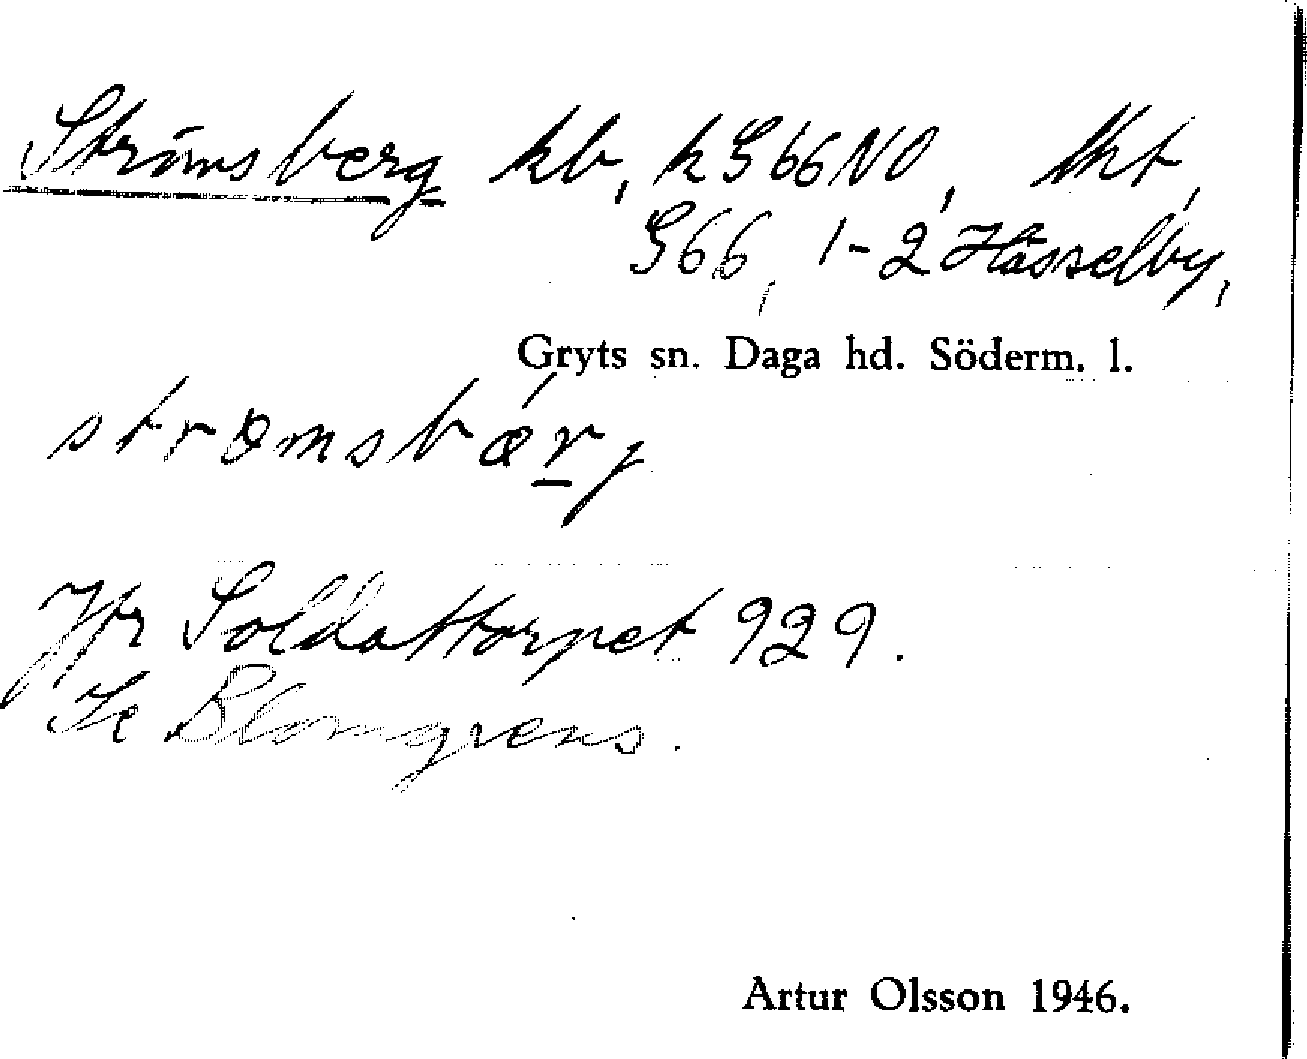 Strömsberg kb, k G66NO, tkt,
G66, 1-2 Hässelby,
Gryts sn. Daga hd. Söderm. l.
strømsbǽrj
Jfr Soldattorpet 929.
Se Blomgrens.
Artur Olsson 1946.